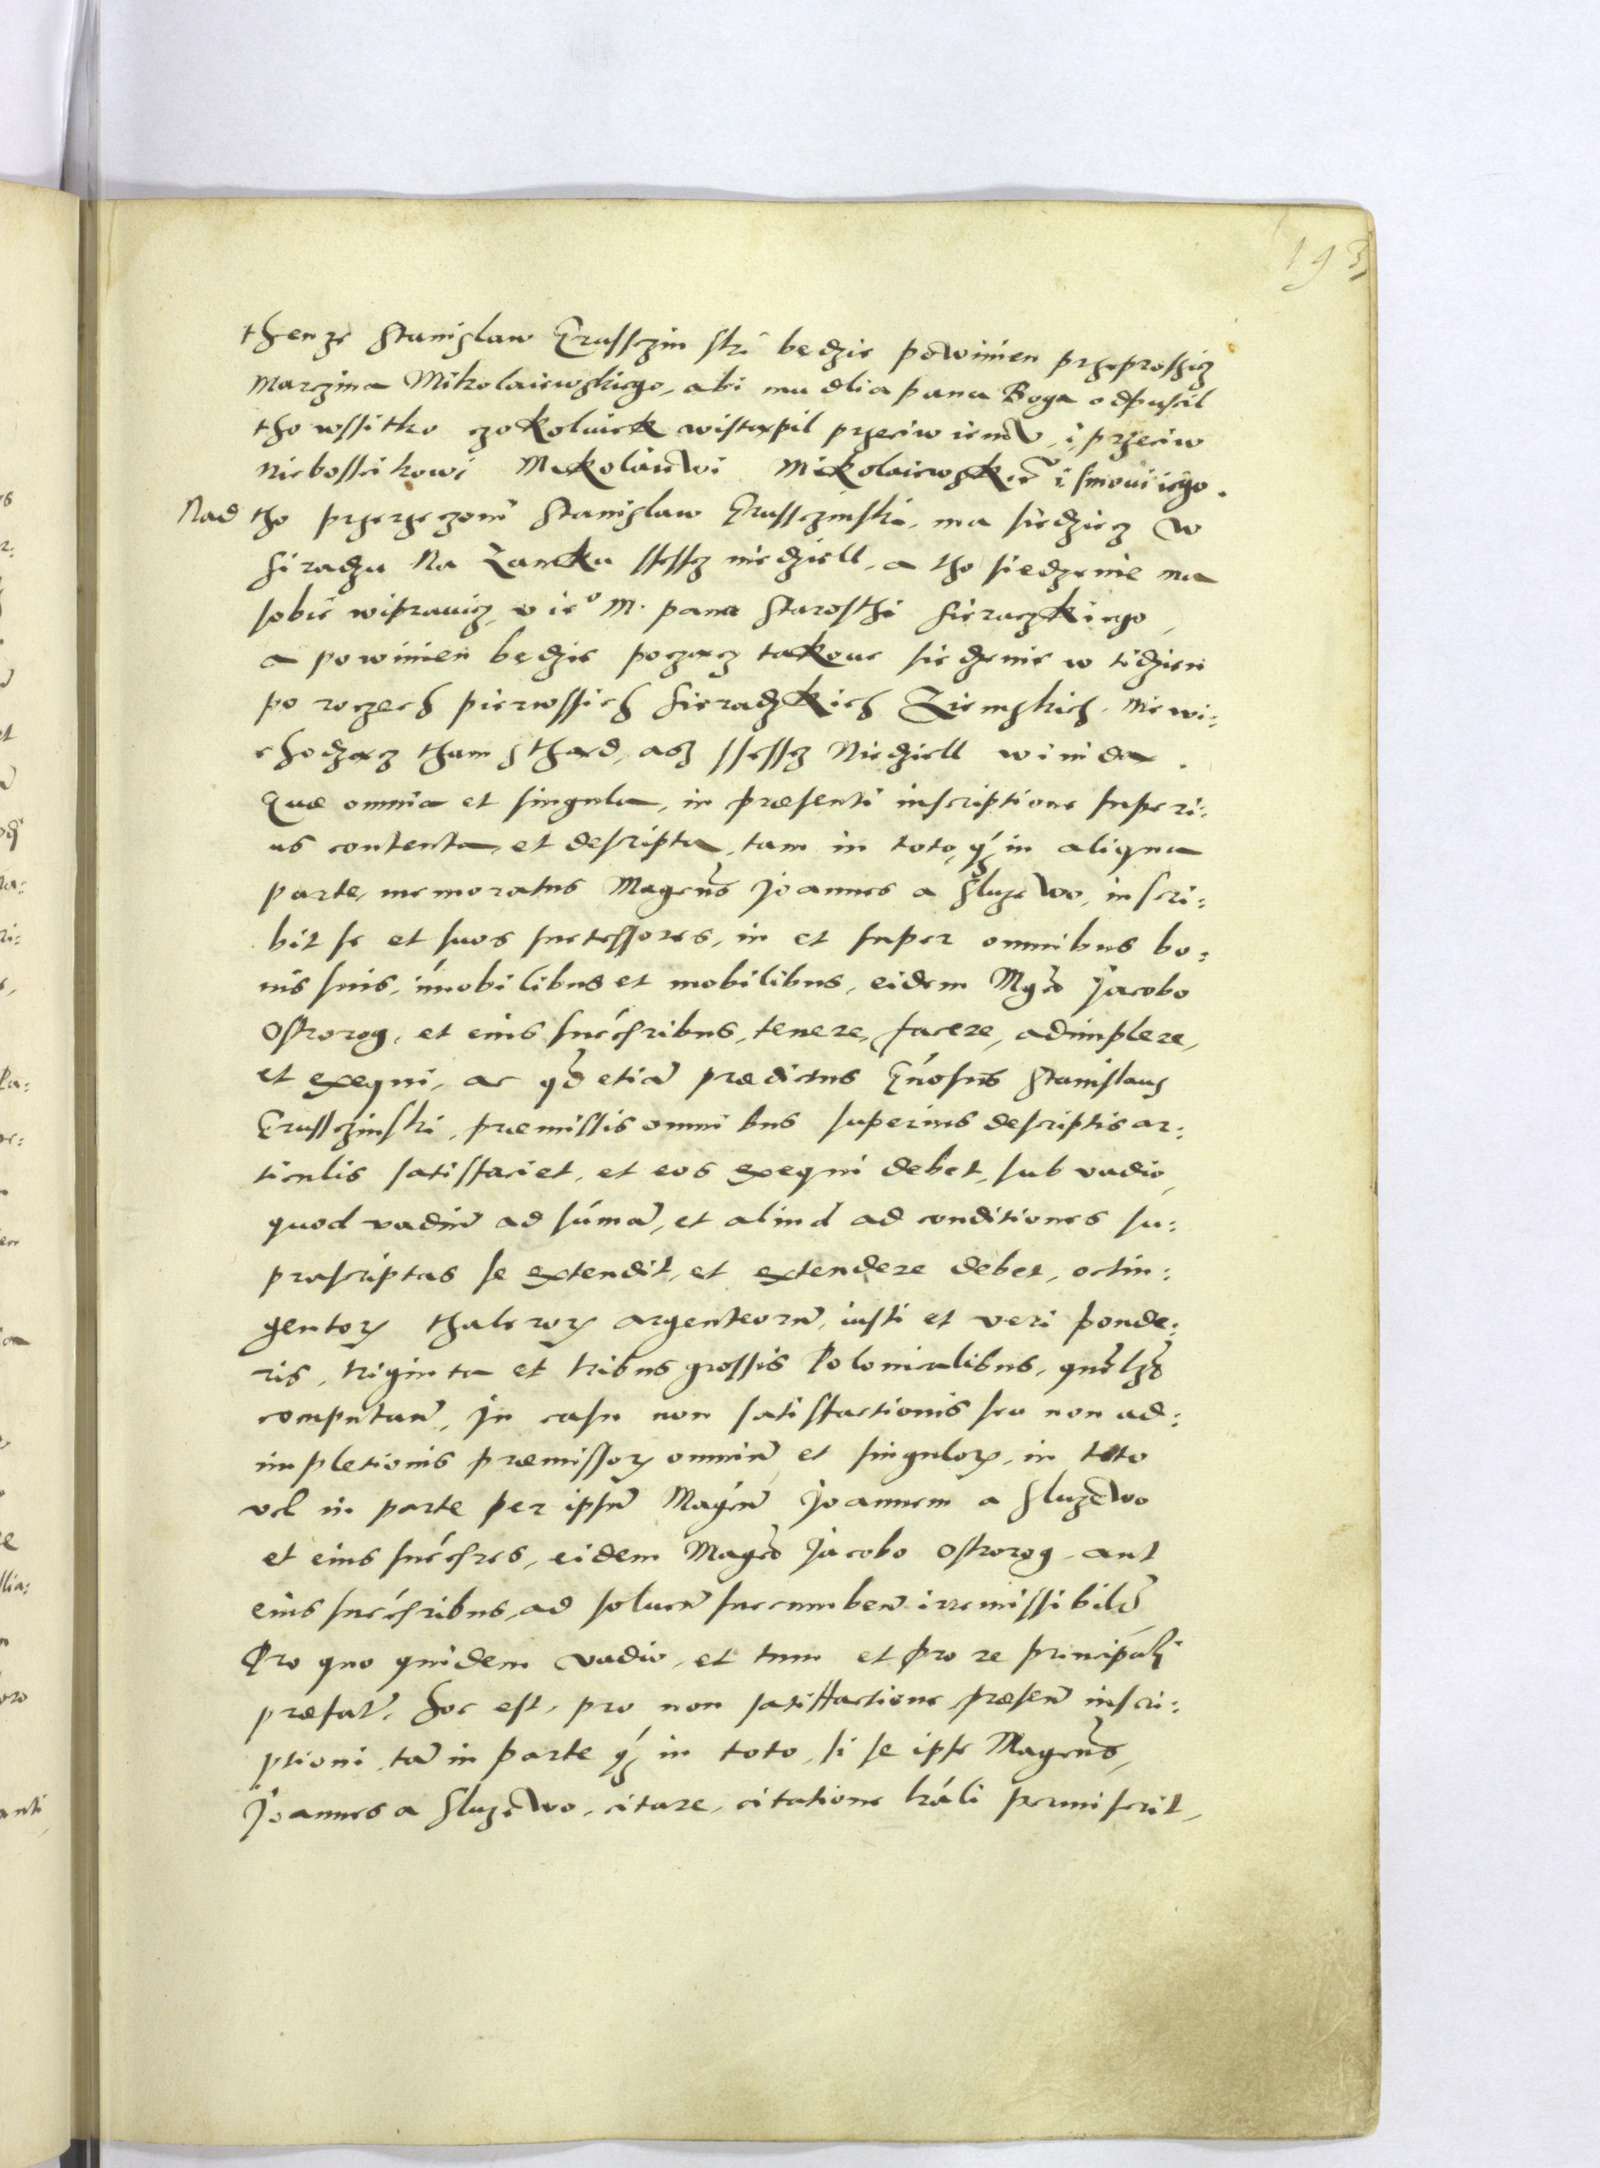 193
thenze Stanislaw Grussczinski będzie powinien przeprossicz
Marczina Mikolaiewskiego, abi mu dlia pana Boga odpuscil
tho wssitko czokolwiek wistąpil przeciw iemu, i przeciw
nieboscikowi Mikolaiowi Mikolaiewskie° i sinowi iego.
Nad tho przerzeczoni Stanislaw Grussczinski, ma siedziecz w
Siradzu na Zamku ssessz niedziell, a tho siedzenie ma
sobie wiprawicz, u ie° M. pana Starosthi Sieraczkiego,
a powinien będzie począcz takowe siedzenie w tidzien
po roczech pierwssich Sieradzkich Ziemskich, nie wi:
chodząc tham sthąd, asz ssessz Niedziell winida.
Quae omnia et singula, in praesenti inscriptione superi:
us contenta et descripta, tam in toto, q̃ in aliqua
parte, memoratus Magcus Joannes a Sluzewo, inscri:
bit se et suos successores, in et super omnibus bo:
nis suis, im̃obilibus et mobilibus, eidem Mgco Jacobo
Ostrorog, et eius succ̃ribus, tenere, facere, adimplere,
et exequi, ac qd̃ etiã praedictus Gñosus Stanislaus
Grussczinski, praemissis omnibus superius descriptis ar:
ticulis satisfaciet, et eos exequi debet, sub vadio,
quod vadiũ ad sum̃ã, et aliud ad conditiones su:
prascriptas se extendit, et extendere debet, octin:
gentorꝝ thalerorꝝ argenteorũ, iusti et veri ponde:
ris, triginta et tribus grossis Polonicalibus,
computanĩ, In casu non satisfactionis seu non ad:
impletionis praemissorꝝ omniũ et singulorꝝ, in toto
vel in parte per ipsũ Magcũ Joannem a Sluzewo
et eius succ̃res, eidem Magco Jacobo Ostrorog, aut
eius succ̃ribus, ad soluen̄ succumben̄ irremissibilr̃
Pro quo quidem vadio, et tum et pro re principali
praefat̃, hoc est, pro non satisfactione praesen̄ inscri:
ptioni, tã in parte q̃ in toto, si se ipse Magcus,
Joannes a Sluzewo, citare, citatione tr̃ali permiserit,